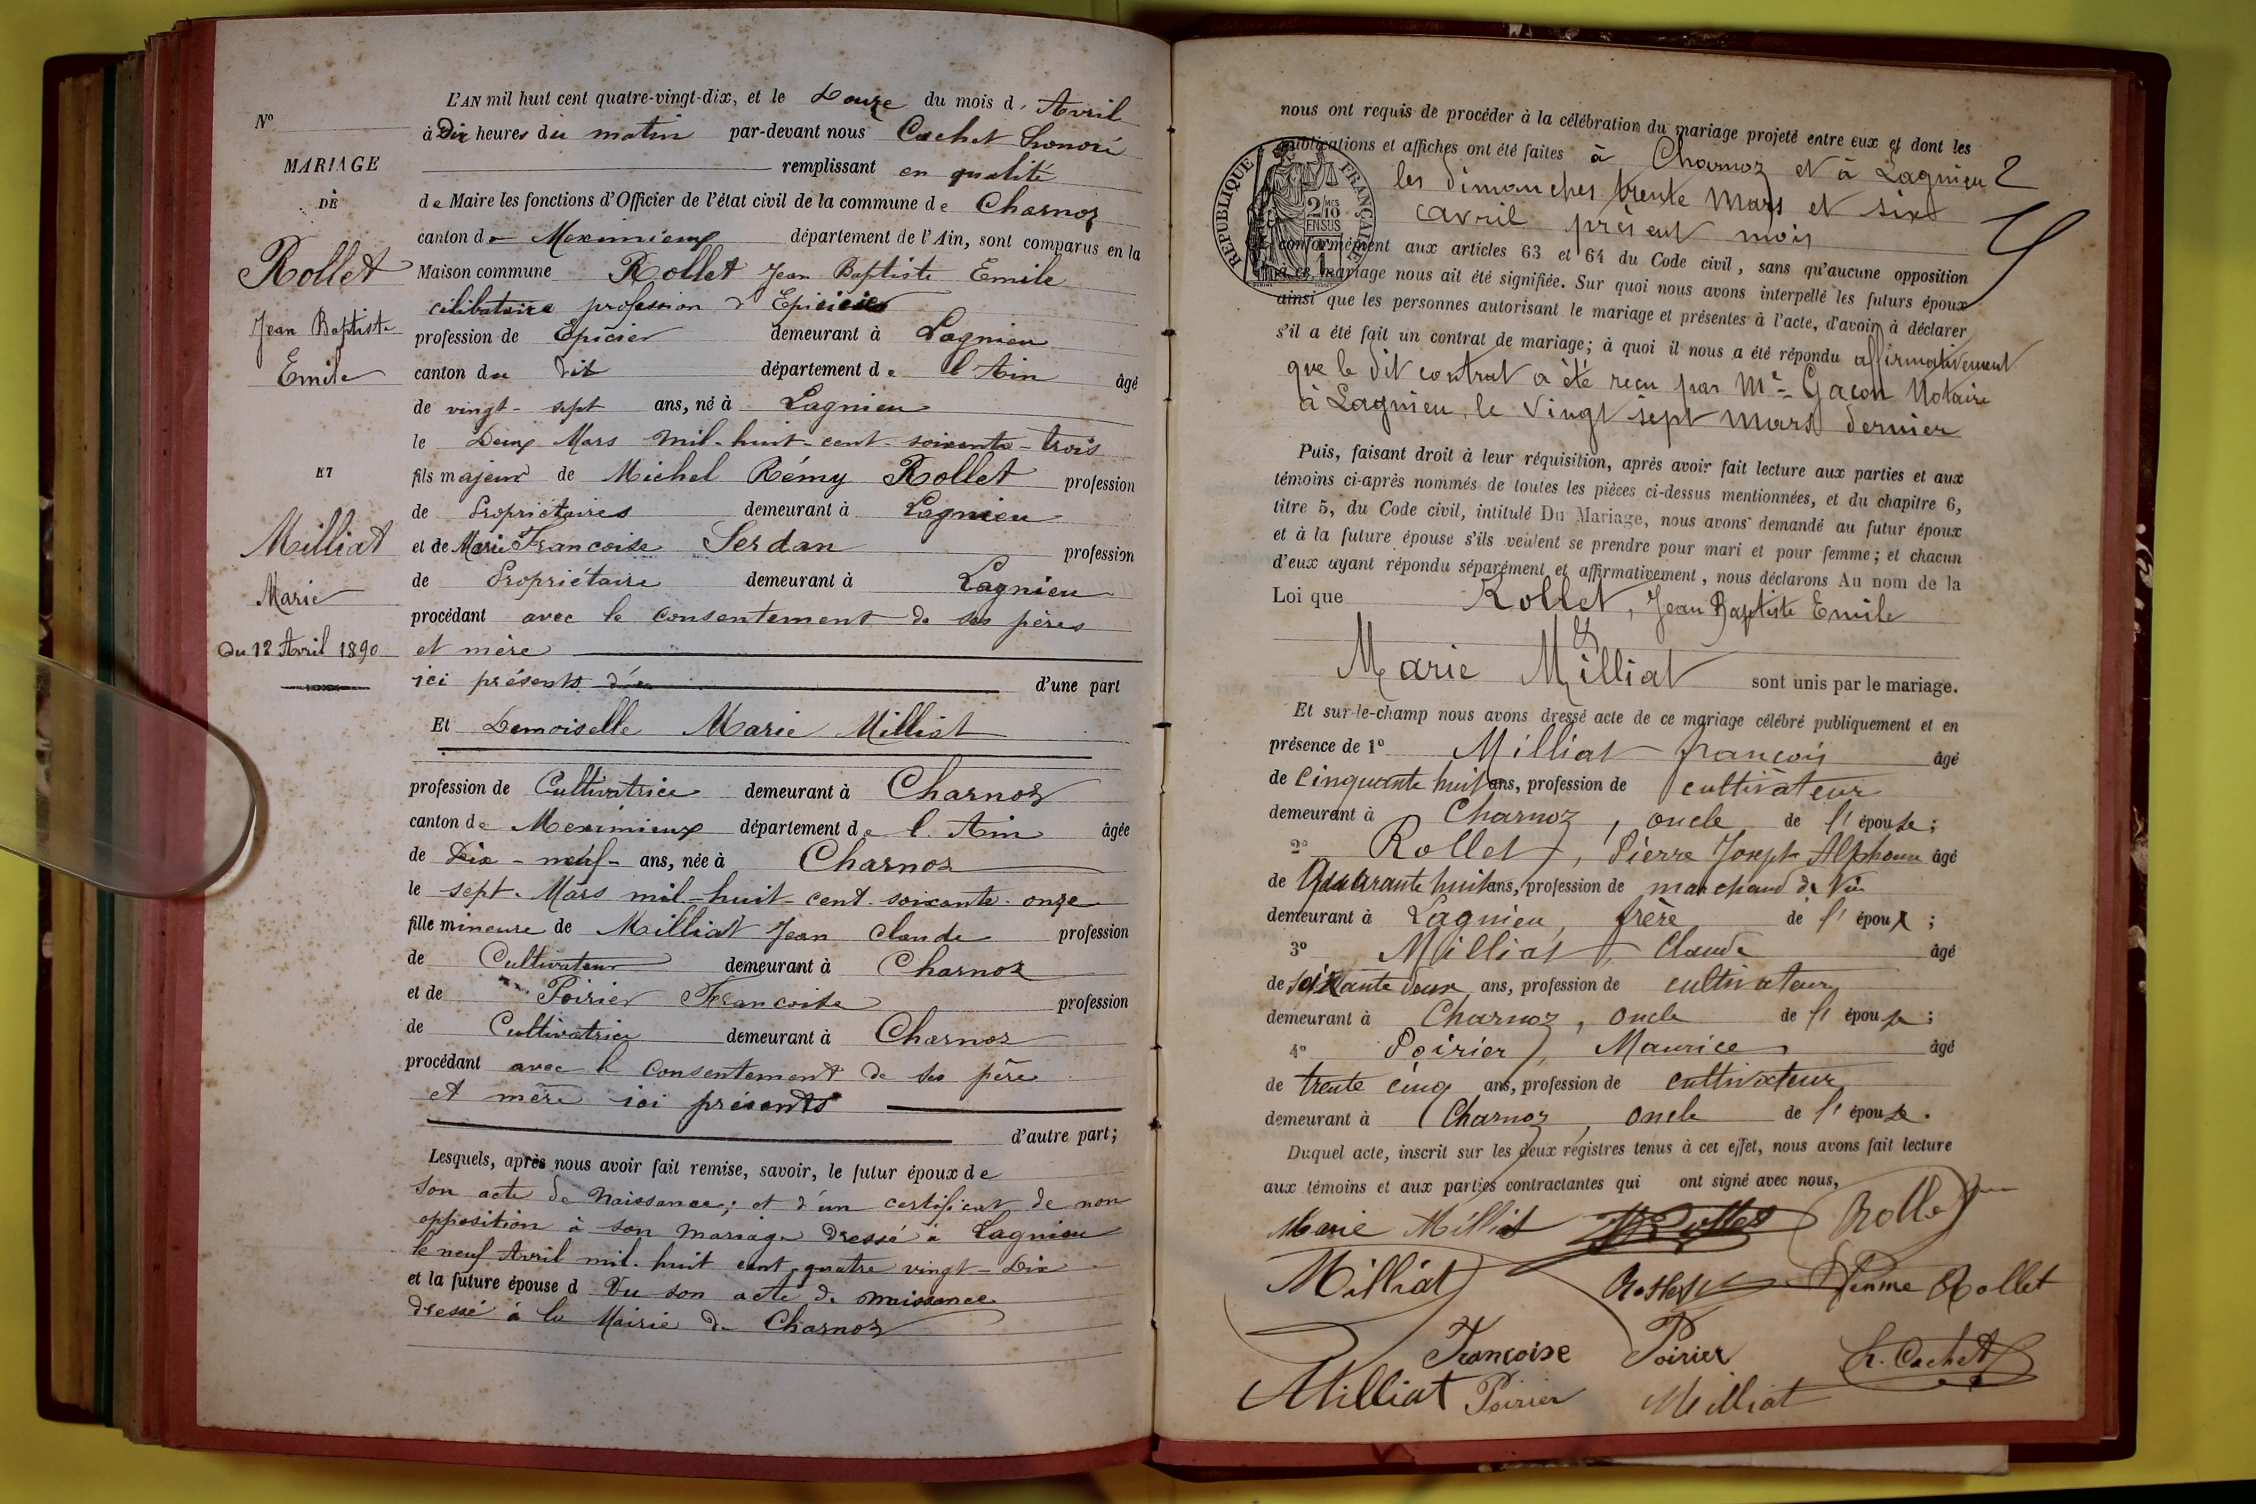 L'AN mil huit cent quatre-vingt-dix, et le Douze du mois d' Avril
à Dix heures du matin par-devant nous Cachet honoré
remplissant en qualité
de Maire les fonctions d'Officier de l'état civil de la commune de Charnoz
canton de Meximieux département de l'Ain, sont comparus en la
Maison commune Rollet Jean Baptiste Emile
célibataire profession d'Epicier
profession de Epicier demeurant à Lagnieu
canton du dit département de l'Ain âgé
de vingt-sept ans, né à Lagnieu
le Deux Mars mil-huit-cent-soixante-trois
fils majeur de Michel Rémy Rollet profession
de Propriétaires demeurant à Lagnieu
et de Marie Francoise Serdan profession
de Propriétaire demeurant à Lagnieu
procédant avec le consentement de ses pères
et mère
ici présents d'une part
Et Demoiselle Marie Milliat
profession de Cultivatrice demeurant à Charnoz
canton de Meximieux département de l'Ain âgée
de Dix-neuf- ans, née à Charnoz
le sept Mars mil-huit-cent-soixante-onze
fille mineure de Milliat Jean Claude profession
de Cultivateur demeurant à Charnoz
et de Poirier Francoise profession
de Cultivatrice demeurant à Charnoz
procédant avec le consentement de ses père
et mère ici présents
d'autre part;
Lesquels, après nous avoir fait remise, savoir, le futur époux de
son acte de Naissance; et d'un certificat de non
opposition à son mariage dressé à Lagnieu
le neuf Avril mil-huit cent quatre vingt-Dix
et la future épouse d Vu son acte de naissance
dressé à la Mairie de Charnoz
N°
MARIAGE
DE
Rollet
Jean Baptiste
Emile
ET
Milliat
Marie
Du 12 Avril 1890
nous ont requis de procéder à la célébration du mariage projeté entre eux et dont les
publications et affiches ont été faites à Charnoz et à Lagnieu
les dimanches trente Mars et six
avril présent mois
conformément aux articles 63 et 64 du Code civil, sans qu'aucune opposition
à ce mariage nous ait été signifiée. Sur quoi nous avons interpellé les futurs époux
ainsi que les personnes autorisant le mariage et présentes à l'acte, d'avoir à déclarer
s'il a été fait un contrat de mariage; à quoi il nous a été répondu affirmativement
que le dit contrat a été reçu par Me Gacon Notaire
à Lagnieu, le vingt sept mars dernier
Puis, faisant droit à leur réquisition, après avoir fait lecture aux parties et aux
témoins ci-après nommés de toutes les pièces ci-dessus mentionnées, et du chapitre 6,
titre 5, du Code civil, intitulé Du Mariage, nous avons demandé au futur époux
et à la future épouse s'ils veulent se prendre pour mari et pour femme; et chacun
d'eux ayant répondu séparément et affirmativement, nous déclarons Au nom de la
Loi que Rollet, Jean Baptiste Emile
&
Marie Milliat sont unis par le mariage.
Et sur-le-champ nous avons dressé acte de ce mariage célébré publiquement et en
présence de 1° Milliat françois âgé
de Cinquante huit ans, profession de cultivateur
demeurant à Charnoz, oncle de l'épouse;
2° Rollet, Pierre Joseph Alphonse âgé
de Quarante huit ans, profession de marchand de Vin
demeurant à Lagnieu, frère de l'époux;
3° Milliat, Claude âgé
de soixante deux ans, profession de cultivateur
demeurant à Charnoz, oncle de l'épouse;
4° Poirier, Maurice âgé
de trente cinq ans, profession de cultivateur
demeurant à Charnoz, oncle de l'épouse.
Duquel acte, inscrit sur les deux régistres tenus à cet effet, nous avons fait lecture
aux témoins et aux parties contractantes qui ont signé avec nous,
Marie Milliat Rollet Rollet
Milliat Rollet Femme Rollet
Françoise Poirier h. Cachet
Milliat Poirier Milliat
REPUBLIQUE FRANÇAISE
2/10
EN SUS